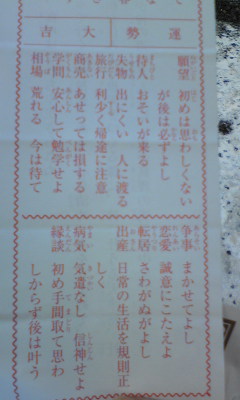 運勢
大吉
願望 初めは思わしくない
が後は必ずよし
待人 おそいが来る
失物 出にくい 人に渡る
旅行 利少く帰途に注意
商売 あせっては損する
学問 安心して勉学せよ
相場 荒れる 今は待て
争事 まかせてよし
恋愛 誠意にこたえよ
転居 さわがぬがよし
出産 日常の生活を規則正
しく
病気 気遣なし 信神せよ
縁談 初め手間取て思わ
しからず後は叶う